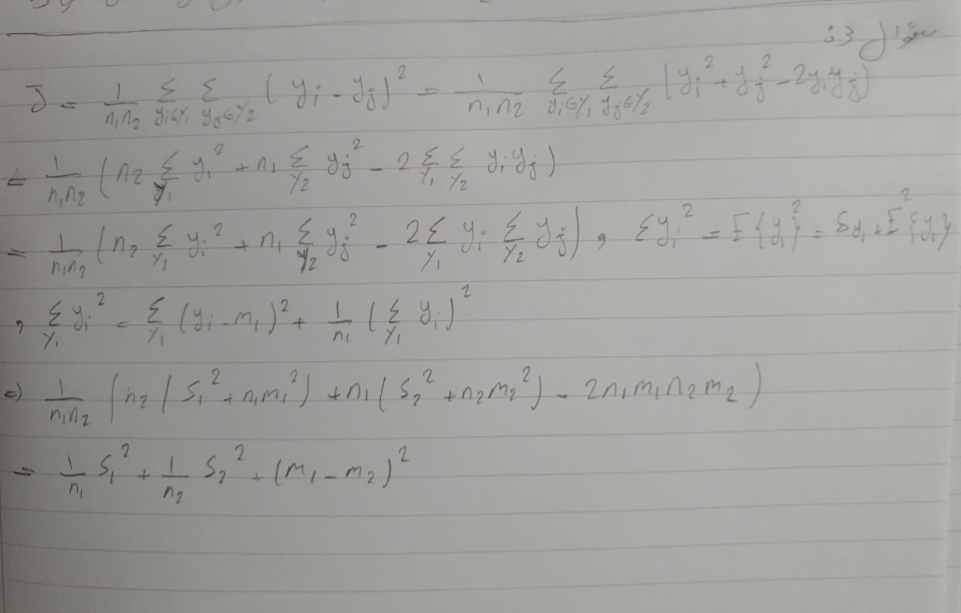 سؤال 3:
J = \frac{1}{n_1 n_2} \sum_{y_i \in Y_1} \sum_{y_j \in Y_2} (y_i - y_j)^2 = \frac{1}{n_1 n_2} \sum_{y_i \in Y_1} \sum_{y_j \in Y_2} (y_i^2 + y_j^2 - 2 y_i y_j)
= \frac{1}{n_1 n_2} (n_2 \sum_{Y_1} y_i^2 + n_1 \sum_{Y_2} y_j^2 - 2 \sum_{Y_1} \sum_{Y_2} y_i y_j)
= \frac{1}{n_1 n_2} (n_2 \sum_{Y_1} y_i^2 + n_1 \sum_{Y_2} y_j^2 - 2 \sum_{Y_1} y_i \sum_{Y_2} y_j), \sum y_i^2 = E\{y_i^2\} = S_{y_1} + E^2\{y_i\}
, \sum_{Y_1} y_i^2 = \sum_{Y_1} (y_i - m_1)^2 + \frac{1}{n_1} (\sum_{Y_1} y_i)^2
=> \frac{1}{n_1 n_2} (n_2 (S_1^2 + n_1 m_1^2) + n_1 (S_2^2 + n_2 m_2^2) - 2 n_1 m_1 n_2 m_2)
= \frac{1}{n_1} S_1^2 + \frac{1}{n_2} S_2^2 + (m_1 - m_2)^2